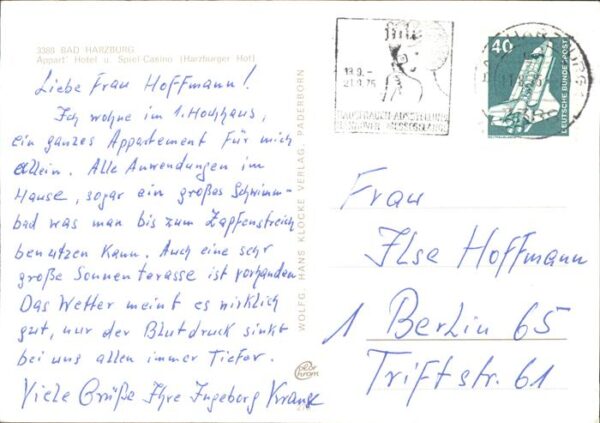 3388 BAD HARZBURG
Appart' Hotel u. Spiel-Casino (Harzburger Hof)
Liebe Frau Hoffmann!
Ich wohne im 1. Hochhaus,
ein ganzes Appartement für mich
allein. Alle Anwendungen im
Hause, sogar ein großes Schwimm-
bad was man bis zum Zapfenstreich
benutzen kann. Auch eine sehr
große Sonnenterasse ist vorhanden
Das Wetter meint es wirklich
gut, nur der Blutdruck sinkt
bei uns allen immer tiefer.
Viele Grüße Ihre Ingeborg Krause
WOLFG. HANS KLOCKE VERLAG, PADERBORN
color
chrom
13.9.–
21.9.75
40
DEUTSCHE BUNDESPOST
Frau
Ilse Hoffmann
1 Berlin 65
Triftstr. 61